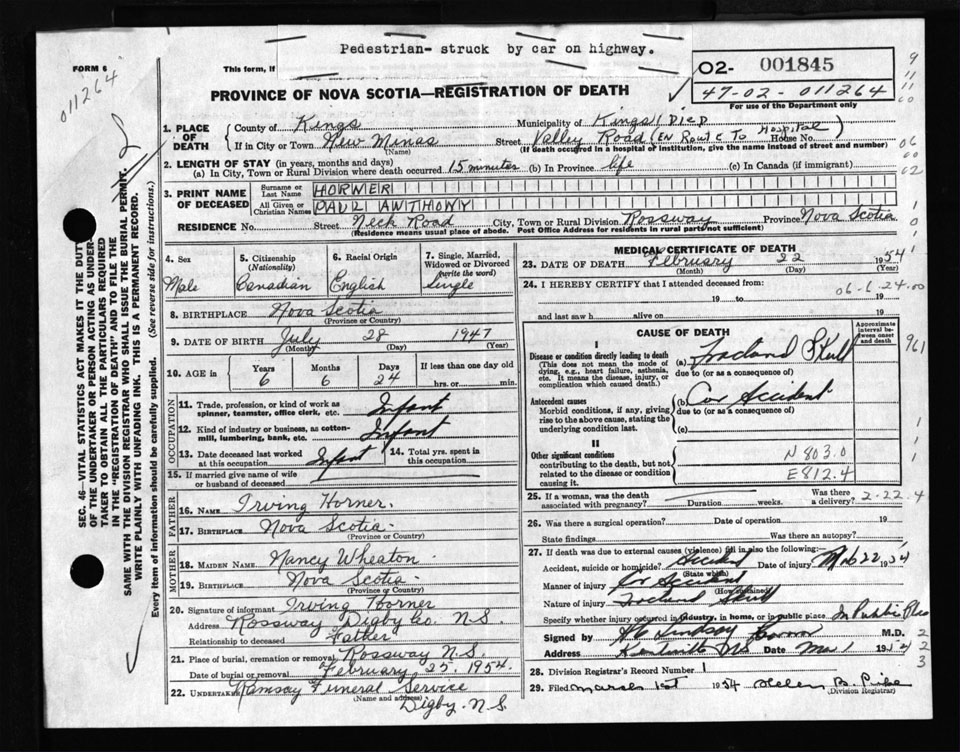 Pedestrian- struck by car on highway.
FORM 6
This form, if
O2- 001845
47-02-011264
For use of the Department only
011264
PROVINCE OF NOVA SCOTIA—REGISTRATION OF DEATH
1. PLACE OF DEATH
County of Kings Municipality of Kings (DIED
If in City or Town New Minas Street Valley Road (EN ROUTE TO Hospital) House No.
(Name) (If death occurred in a hospital or institution, give the name instead of street and number)
2. LENGTH OF STAY (in years, months and days)
(a) In City, Town or Rural Division where death occurred 15 minutes (b) In Province life (c) In Canada (if immigrant)
3. PRINT NAME OF DECEASED
Surname or Last Name HORNER
All Given or Christian Names PAUL ANTHONY
RESIDENCE No. Street Neck Road City, Town or Rural Division Rossway Province Nova Scotia
(Residence means usual place of abode. Post Office Address for residents in rural parts not sufficient)
4. Sex
Male
5. Citizenship (Nationality)
Canadian
6. Racial Origin
English
7. Single, Married, Widowed or Divorced (write the word)
Single
8. BIRTHPLACE Nova Scotia
(Province or Country)
9. DATE OF BIRTH July 28 1947
(Month) (Day) (Year)
10. AGE in Years Months Days If less than one day old
6 6 24 hrs. or min.
OCCUPATION
11. Trade, profession, or kind of work as spinner, teamster, office clerk, etc. Infant
12. Kind of industry or business, as cotton-mill, lumbering, bank, etc. Infant
13. Date deceased last worked at this occupation Infant
14. Total yrs. spent in this occupation
15. If married give name of wife or husband of deceased
FATHER
16. NAME Irving Horner.
17. BIRTHPLACE Nova Scotia-
MOTHER
18. MAIDEN NAME Nancy Wheaton.
19. BIRTHPLACE Nova Scotia-
(Province or Country)
20. Signature of informant Irving Horner
Address Rossway Digby Co. N.S.
Relationship to deceased Father
21. Place of burial, cremation or removal Rossway N.S.
Date of burial or removal February 25, 1954.
22. UNDERTAKER Ramsay Funeral Service
(Name and address) Digby. N.S
MEDICAL CERTIFICATE OF DEATH
23. DATE OF DEATH February 22 1954
(Month) (Day) (Year)
24. I HEREBY CERTIFY that I attended deceased from:
06-6-24-00
19 to 19
and last saw h alive on 19
CAUSE OF DEATH
Approximate interval between onset and death
I
Disease or condition directly leading to death
(This does not mean the mode of dying, e.g., heart failure, asthenia, etc. It means the disease, injury, or complication which caused death.)
(a) Fractured Skull
due to (or as a consequence of)
Antecedent causes
Morbid conditions, if any, giving rise to the above cause, stating the underlying condition last.
(b) Car Accident
due to (or as a consequence of)
(c)
II
Other significant conditions
contributing to the death, but not related to the disease or condition causing it.
N 803.0
E 812.4
961
25. If a woman, was the death associated with pregnancy? Duration weeks. Was there a delivery? 2-22.4
26. Was there a surgical operation? Date of operation 19
State findings Was there an autopsy?
27. If death was due to external causes (violence) fill in also the following:—
Accident, suicide or homicide? Accident Date of injury Feb 22 1954
(State which)
Manner of injury Car Accident
(How sustained)
Nature of injury Fractured Skull
Specify whether injury occurred in industry, in home, or in public place In Public Place
Signed by Lindsay Coroner M.D.
Address Kentville NS Date Mar 1 1954
28. Division Registrar's Record Number 1
29. Filed March 1st 1954 Helen B. Pike
(Division Registrar)
SEC. 46—VITAL STATISTICS ACT MAKES IT THE DUTY
OF THE UNDERTAKER OR PERSON ACTING AS UNDER-
TAKER TO OBTAIN ALL THE PARTICULARS REQUIRED
IN THE "REGISTRATION OF DEATH" AND TO FILE THE
SAME WITH THE DIVISION REGISTRAR WHO SHALL ISSUE THE BURIAL PERMIT.
WRITE PLAINLY WITH UNFADING INK. THIS IS A PERMANENT RECORD.
Every item of information should be carefully supplied. (See reverse side for instructions.)